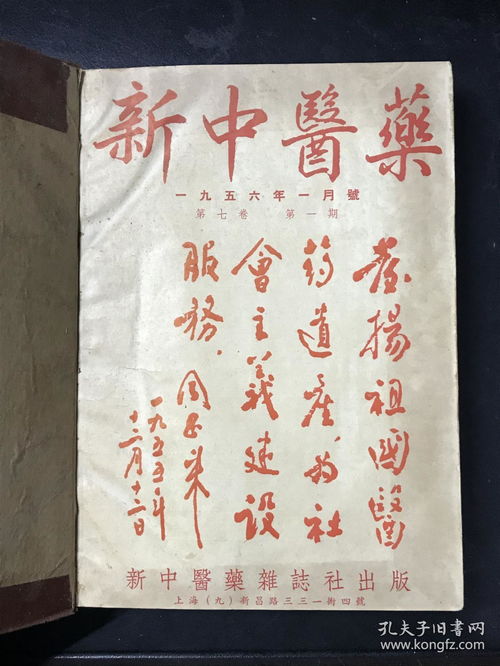 新中醫藥
一九五六年一月號
第七卷 第一期
發揚祖國醫
药遺產,为社
會主義建设
服務.
周恩来
一九五五年
十二月十二日
新中醫藥雜誌社出版
上海(九)新昌路三三一衖四號
孔夫子旧书网
www.kongfz.com